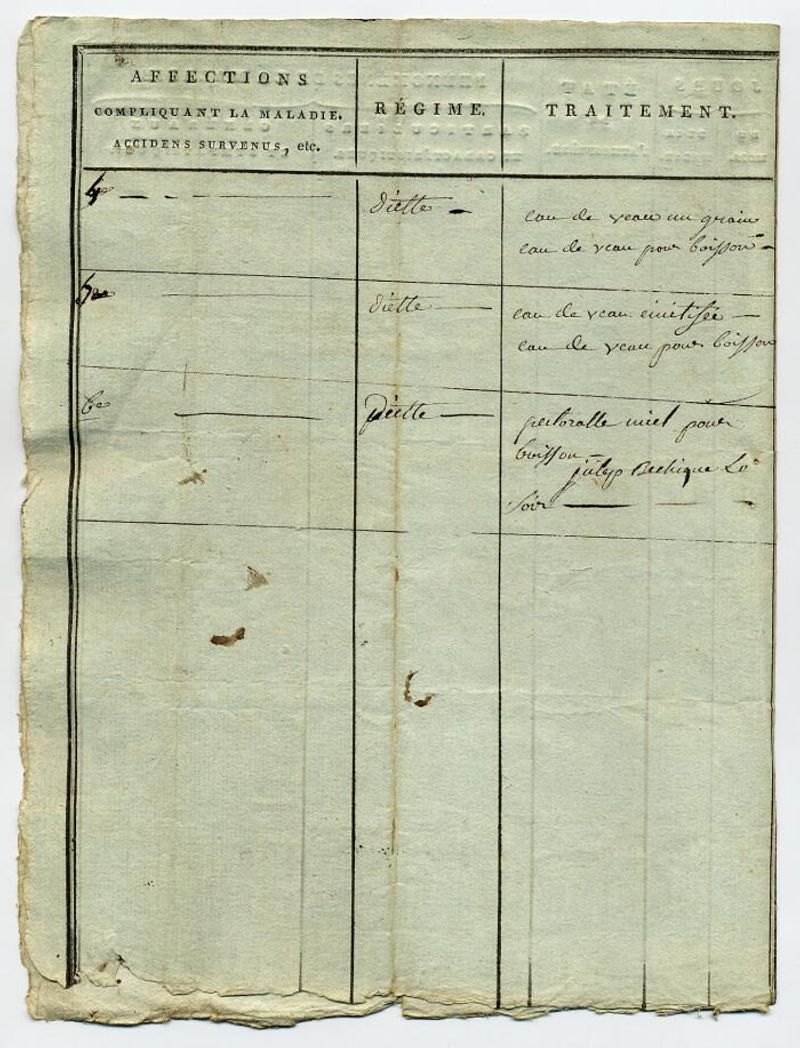 AFFECTIONS
COMPLIQUANT LA MALADIE.
ACCIDENS SURVENUS, etc.
RÉGIME.
TRAITEMENT.
4e
diette
eau de veau un grain
eau de veau pour boisson
5e
diette
eau de veau émétisée
eau de veau pour boisson
6e
diette
pectoralle miel pour
boisson
julep Bechique Le
soir